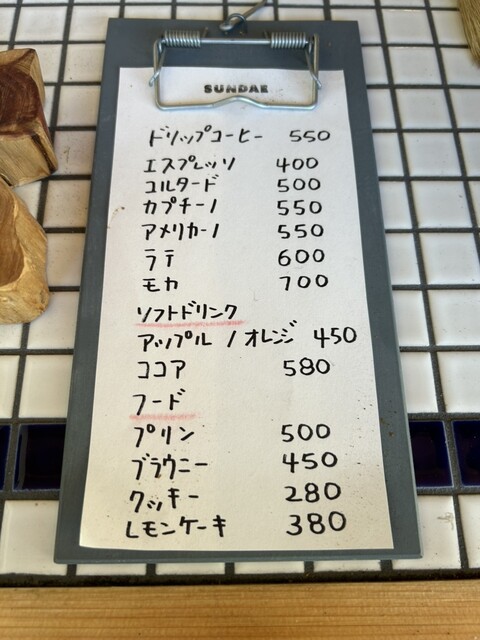 SUNDAE
ドリップコーヒー 550
エスプレッソ 400
コルタード 500
カプチーノ 550
アメリカーノ 550
ラテ 600
モカ 700
ソフトドリンク
アップル / オレンジ 450
ココア 580
フード
プリン 500
ブラウニー 450
クッキー 280
レモンケーキ 380